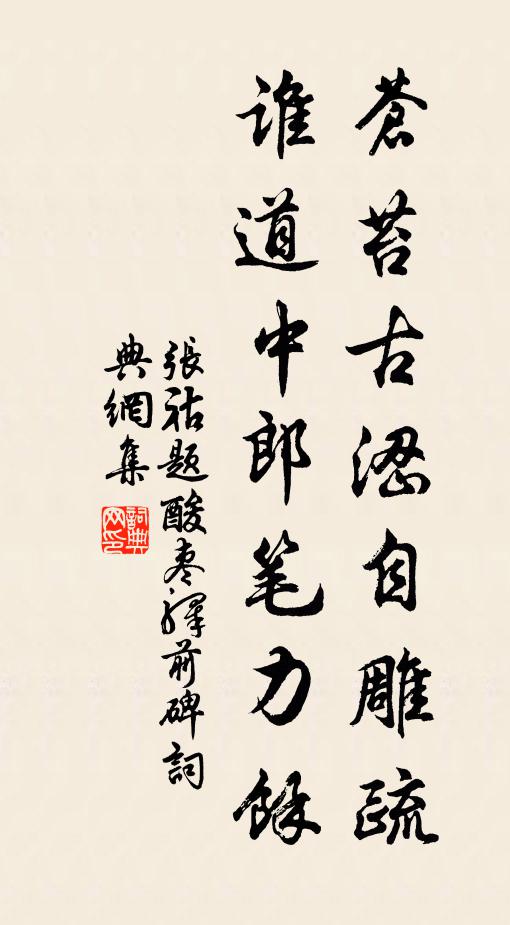 蒼苔古澀自雕疏
誰道中郎笔力餘
張祜題酸棗驛前碑詞
典網集
詞典
网印